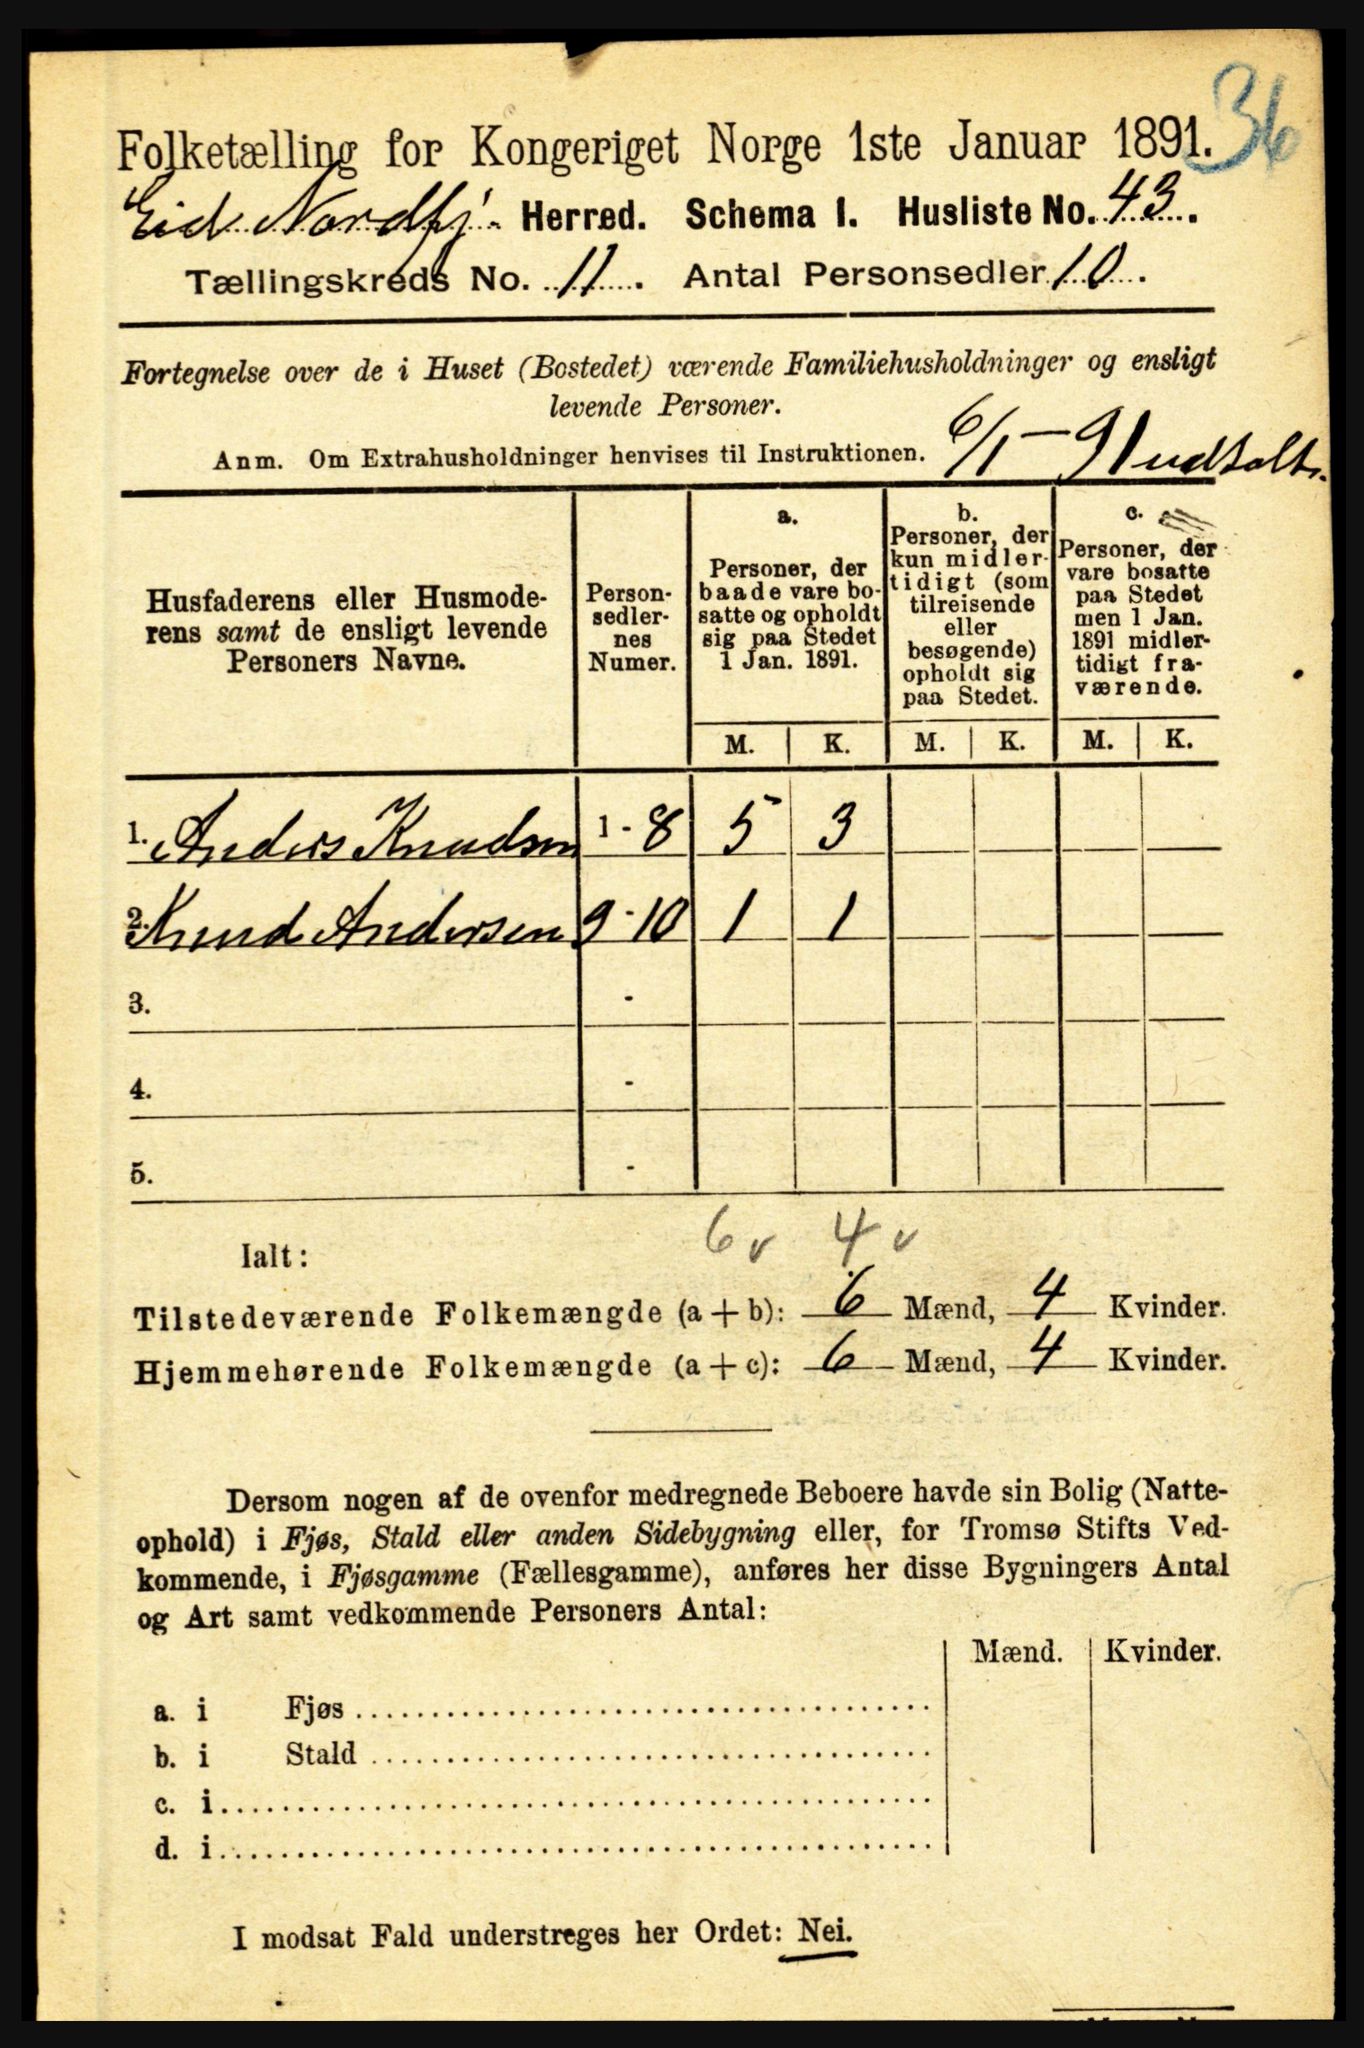 36
Folketælling for Kongeriget Norge 1ste Januar 1891.
Eid Nordfj. Herred. Schema I. Husliste No. 43.
Tællingskreds No. 11. Antal Personsedler 10.
Fortegnelse over de i Huset (Bostedet) værende Familiehusholdninger og ensligt
levende Personer.
Anm. Om Extrahusholdninger henvises til Instruktionen. 6/1 - 91 udtalt.
Husfaderens eller Husmode-
rens samt de ensligt levende
Personers Navne.
Person-
sedler-
nes
Numer.
a.
Personer, der
baade vare bo-
satte og opholdt
sig paa Stedet
1 Jan. 1891.
b.
Personer, der
kun midler-
tidigt (som
tilreisende
eller
besøgende)
opholdt sig
paa Stedet.
c.
Personer, der
vare bosatte
paa Stedet
men 1 Jan.
1891 midler-
tidigt fra-
værende.
M. K. M. K. M. K.
1. Anders Knudsen 1 - 8 5 3
2. Knud Andersen 9 - 10 1 1
3. -
4. -
5. -
6 v 4 v
Ialt:
Tilstedeværende Folkemængde (a + b): 6 Mænd, 4 Kvinder.
Hjemmehørende Folkemængde (a + c): 6 Mænd, 4 Kvinder.
Dersom nogen af de ovenfor medregnede Beboere havde sin Bolig (Natte-
ophold) i Fjøs, Stald eller anden Sidebygning eller, for Tromsø Stifts Ved-
kommende, i Fjøsgamme (Fællesgamme), anføres her disse Bygningers Antal
og Art samt vedkommende Personers Antal:
Mænd. Kvinder.
a. i Fjøs
b. i Stald
c. i
d. i
I modsat Fald understreges her Ordet: Nei.